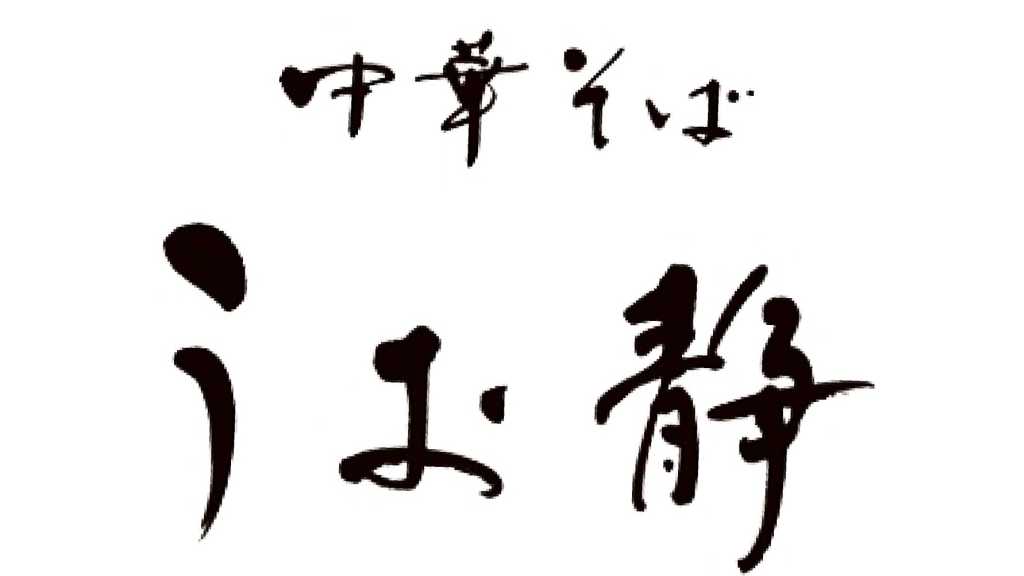 中華そば
うお静